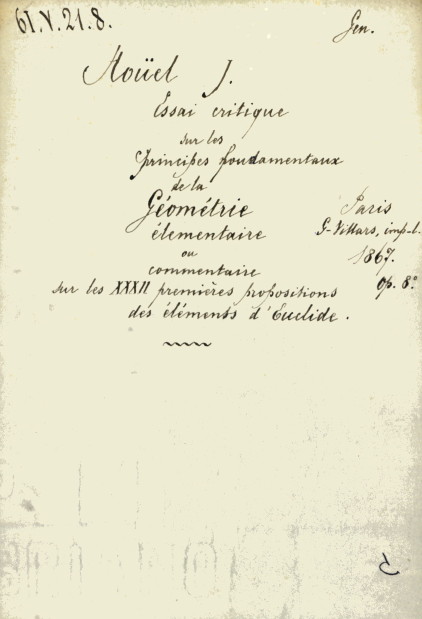 61.V.21.8.
Gen.
Hoüel J.
Essai critique
sur les
Principes fondamentaux
de la
Géométrie
élementaire
ou
commentaire
sur les XXXII premières propositions
des éléments d'Euclide.
Paris
G-Villars, imp-l.
1867.
op. 8°